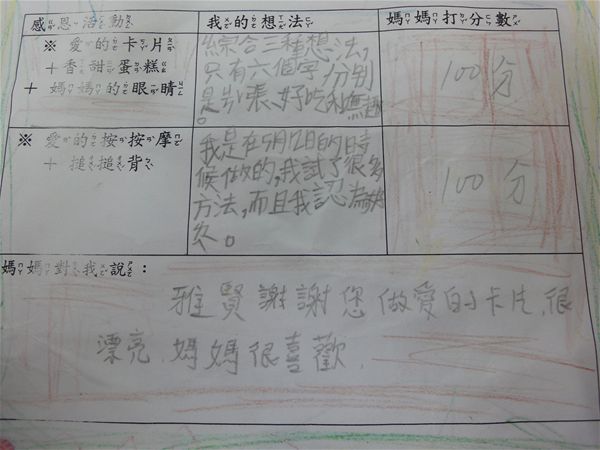 感恩活動 我的想法 媽媽打分數
※ 愛的卡片
+香甜蛋糕
+ 媽媽的眼睛
綜合三種想法,
只有六個字分別
是 張、好吃和無
。
100分
※ 愛的按按摩
+ 搥搥背
我是在5月12日的時
候做的,我試了很多
方法,而且我認為
久。
100分
媽媽對我說:
雅賢謝謝您做愛的卡片,很
漂亮,媽媽很喜歡.